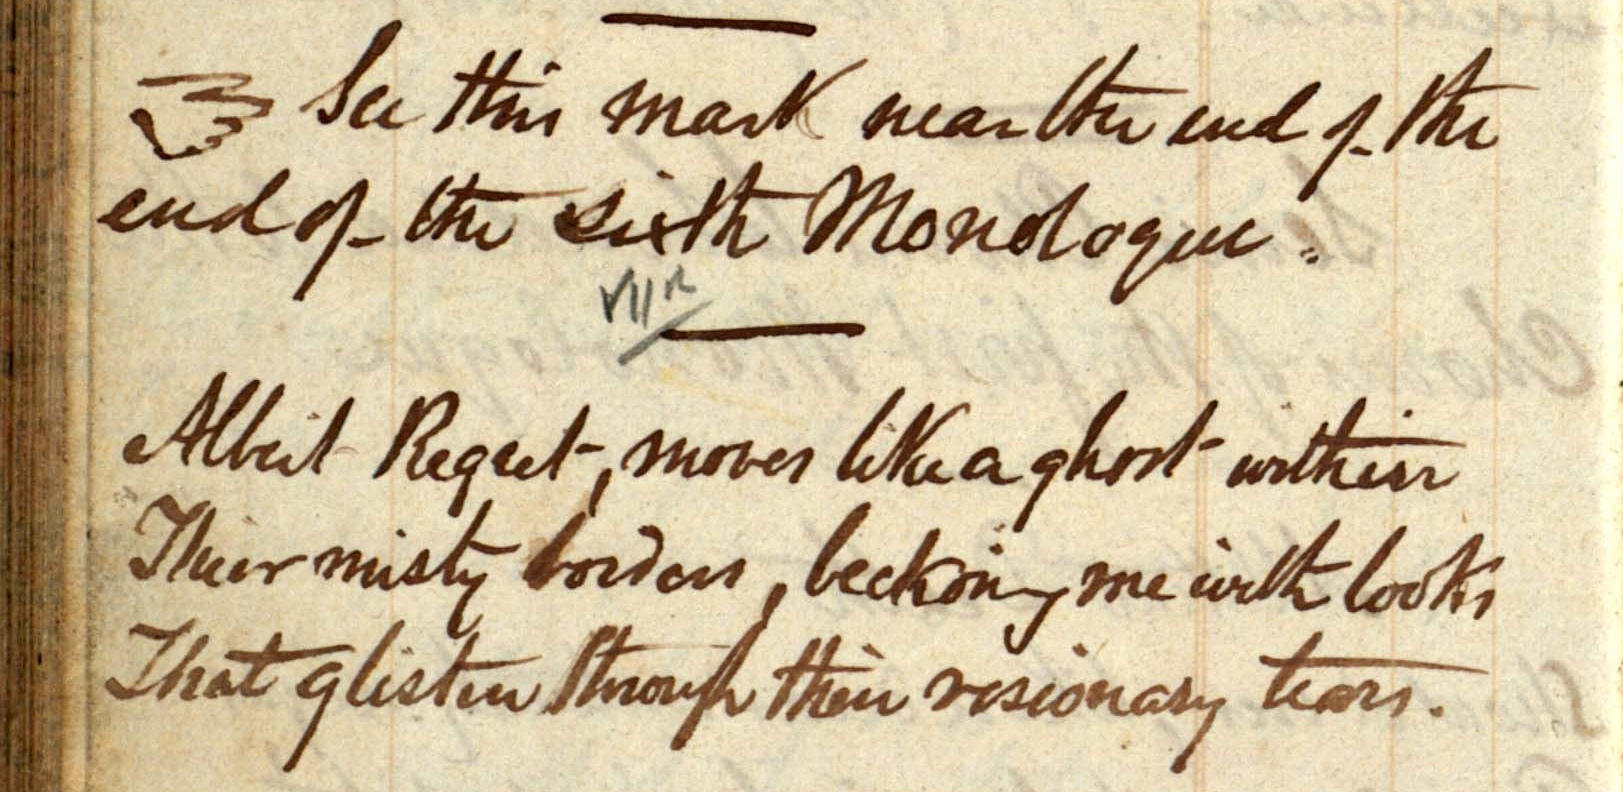 ☞ See this mark near the end of the
end of the sixth Monologue.
VIIth
Albeit Regret, moves like a ghost within
Their misty borders, beckoning me with looks
That glisten through their visionary tears.